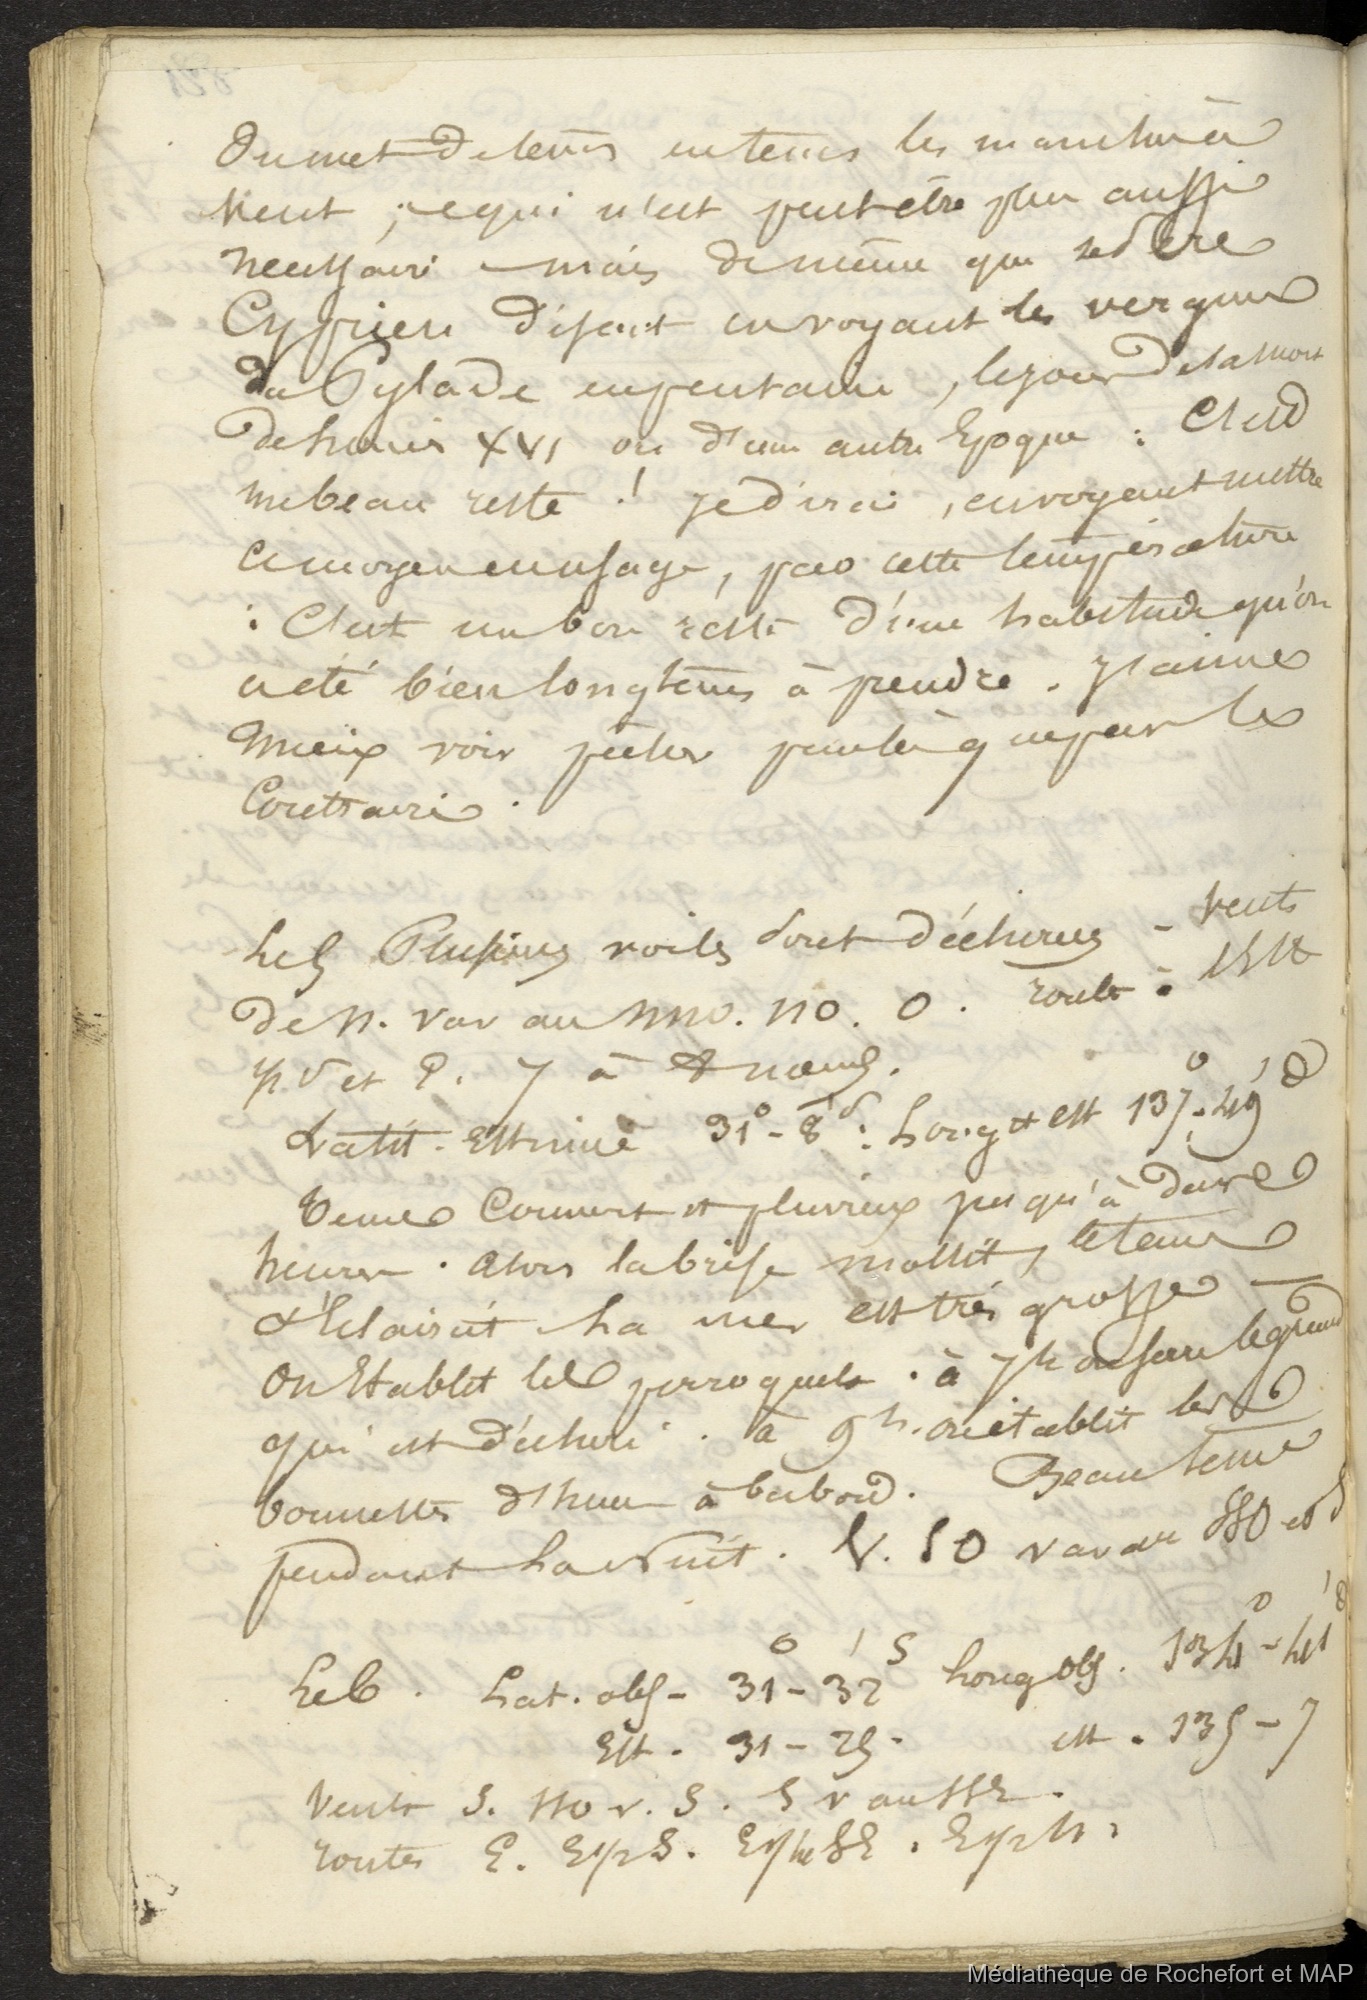 On met de tems en tems les manches à
vent, ce qui n'est peut être plus aussi
necessaire mais de même que le Père
Cyprien disait en voyant les vergues
du Pylade en pentaine, le jour de la mort
de Louis XVI ou d'une autre Epoque : C'est
un beau reste ! je dirai, en voyant mettre
ce moyen en usage, par cette température
: C'est un bon reste d'une habitude qu'on
a été bien longtems à prendre. J'aime
mieux voir pêcher par là que par le
Contraire.
Le 5 Plusieurs voiles sont déchirées - Vents
de N. var au NNO. NO. O. route :
et E. 7 à 8 nœuds.
Latit. Estimée 31° - 8' S : Long est 137°. 49' O
Tems Couvert et pluvieux jusqu'à deux
heures. Alors la brise mollit, le tems
s'éclaircit La mer est très grosse —
On Etablit les perroquets. à 7h on serre le grand
qui est déchiré. à 9h. on établit les
bonnettes d'hune à babord. Beau tems
pendant la Nuit. V. SO var au SSO et S
Le 6. Lat. obs - 31° - 32' S Long obs. 134° - 41' O
Est. 31 - 25. est. 135 - 7
Vents S. NO v. S. S v au SSE.
routes E. E 1/2 S. E 1/4 SE. E 1/2 N.